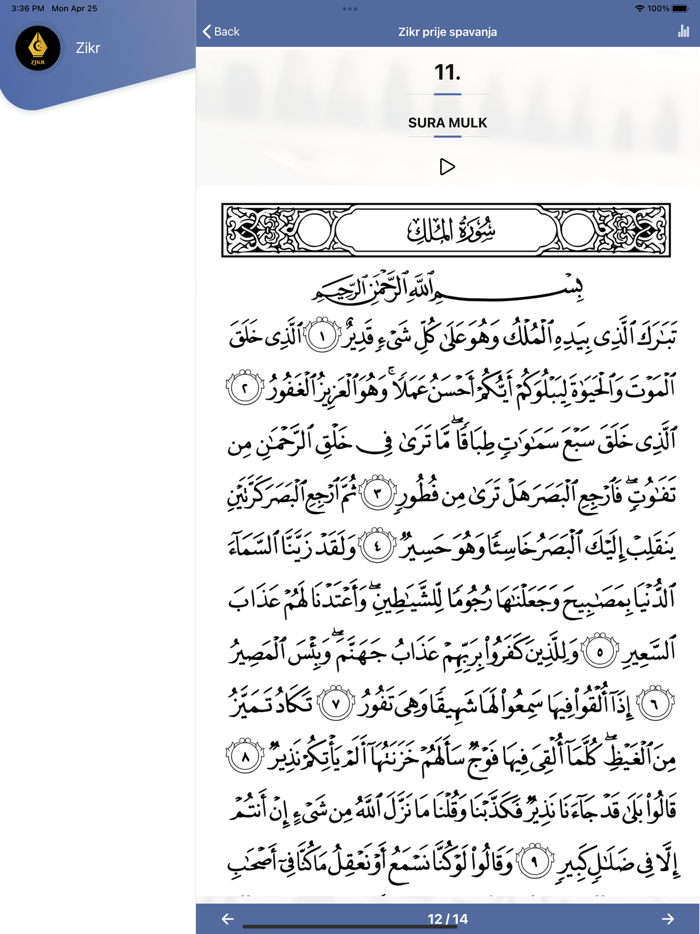 3:36 PM Mon Apr 25
100%
ZIKR
Zikr
Back
Zikr prije spavanja
11.
SURA MULK
سُورَةُ المُلك
بِسۡمِ ٱللَّهِ ٱلرَّحۡمَٰنِ ٱلرَّحِيمِ
تَبَٰرَكَ ٱلَّذِي بِيَدِهِ ٱلۡمُلۡكُ وَهُوَ عَلَىٰ كُلِّ شَيۡءٖ قَدِيرٌ ١ ٱلَّذِي خَلَقَ
ٱلۡمَوۡتَ وَٱلۡحَيَوٰةَ لِيَبۡلُوَكُمۡ أَيُّكُمۡ أَحۡسَنُ عَمَلٗاۚ وَهُوَ ٱلۡعَزِيزُ ٱلۡغَفُورُ ٢
ٱلَّذِي خَلَقَ سَبۡعَ سَمَٰوَٰتٖ طِبَاقٗاۖ مَّا تَرَىٰ فِي خَلۡقِ ٱلرَّحۡمَٰنِ مِن
تَفَٰوُتٖۖ فَٱرۡجِعِ ٱلۡبَصَرَ هَلۡ تَرَىٰ مِن فُطُورٖ ٣ ثُمَّ ٱرۡجِعِ ٱلۡبَصَرَ كَرَّتَيۡنِ
يَنقَلِبۡ إِلَيۡكَ ٱلۡبَصَرُ خَاسِئٗا وَهُوَ حَسِيرٞ ٤ وَلَقَدۡ زَيَّنَّا ٱلسَّمَآءَ
ٱلدُّنۡيَا بِمَصَٰبِيحَ وَجَعَلۡنَٰهَا رُجُومٗا لِّلشَّيَٰطِينِۖ وَأَعۡتَدۡنَا لَهُمۡ عَذَابَ
ٱلسَّعِيرِ ٥ وَلِلَّذِينَ كَفَرُواْ بِرَبِّهِمۡ عَذَابُ جَهَنَّمَۖ وَبِئۡسَ ٱلۡمَصِيرُ
٦ إِذَآ أُلۡقُواْ فِيهَا سَمِعُواْ لَهَا شَهِيقٗا وَهِيَ تَفُورُ ٧ تَكَادُ تَمَيَّزُ
مِنَ ٱلۡغَيۡظِۖ كُلَّمَآ أُلۡقِيَ فِيهَا فَوۡجٞ سَأَلَهُمۡ خَزَنَتُهَآ أَلَمۡ يَأۡتِكُمۡ نَذِيرٞ ٨
قَالُواْ بَلَىٰ قَدۡ جَآءَنَا نَذِيرٞ فَكَذَّبۡنَا وَقُلۡنَا مَا نَزَّلَ ٱللَّهُ مِن شَيۡءٍ إِنۡ أَنتُمۡ
إِلَّا فِي ضَلَٰلٖ كَبِيرٖ ٩ وَقَالُواْ لَوۡ كُنَّا نَسۡمَعُ أَوۡ نَعۡقِلُ مَا كُنَّا فِيٓ أَصۡحَٰبِ
12 / 14